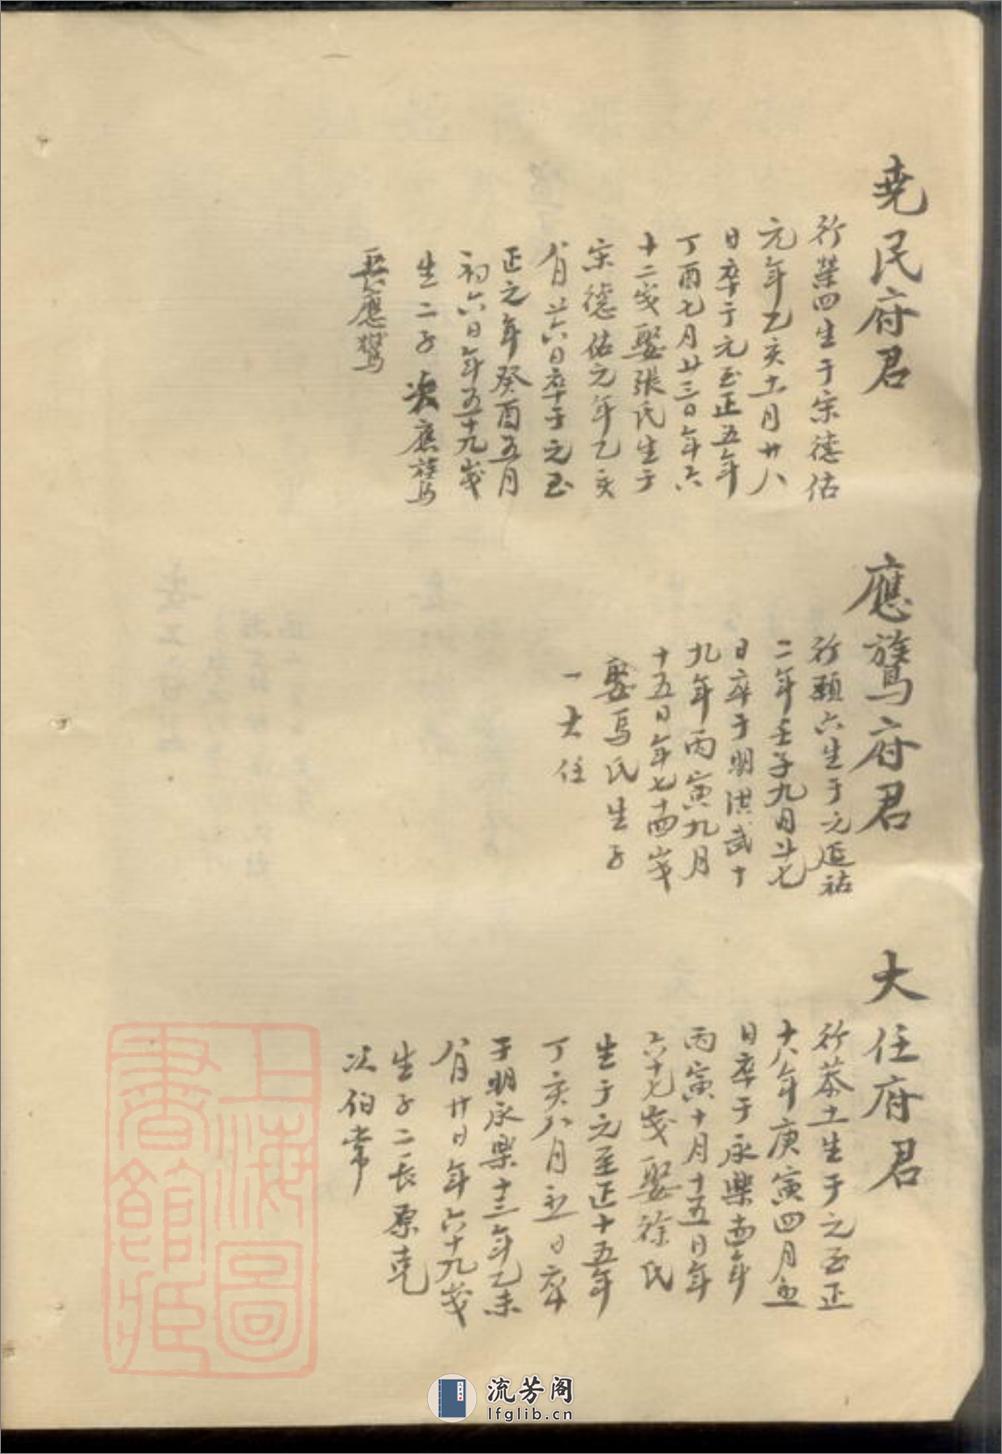 堯民府君
行榮四生于宋德佑
元年乙亥十一月廿八
日卒于元至正五年
丁酉七月廿三日年六
十二歲娶張氏生于
宋德佑元年乙亥
八月廿六日卒于元至
正元年癸酉五月
初六日年五十九歲
生二子 次應鷟
長應鸞
應鷟府君
行顯六生于元延祐
二年壬子九月廿七
日卒于明洪武十
九年丙寅九月
十五日年七十四歲
娶馬氏生子
一大任
大任府君
行恭土生于元至正
十八年庚寅四月初五
日卒于永樂四年
丙寅十月十五日年
六十七歲娶徐氏
生于元至正十五年
丁亥八月初五日卒
于明永樂十三年乙未
八月廿日年六十九歲
生子二長原克
次伯常
上海圖書館藏
流芳阁
lfglib.cn